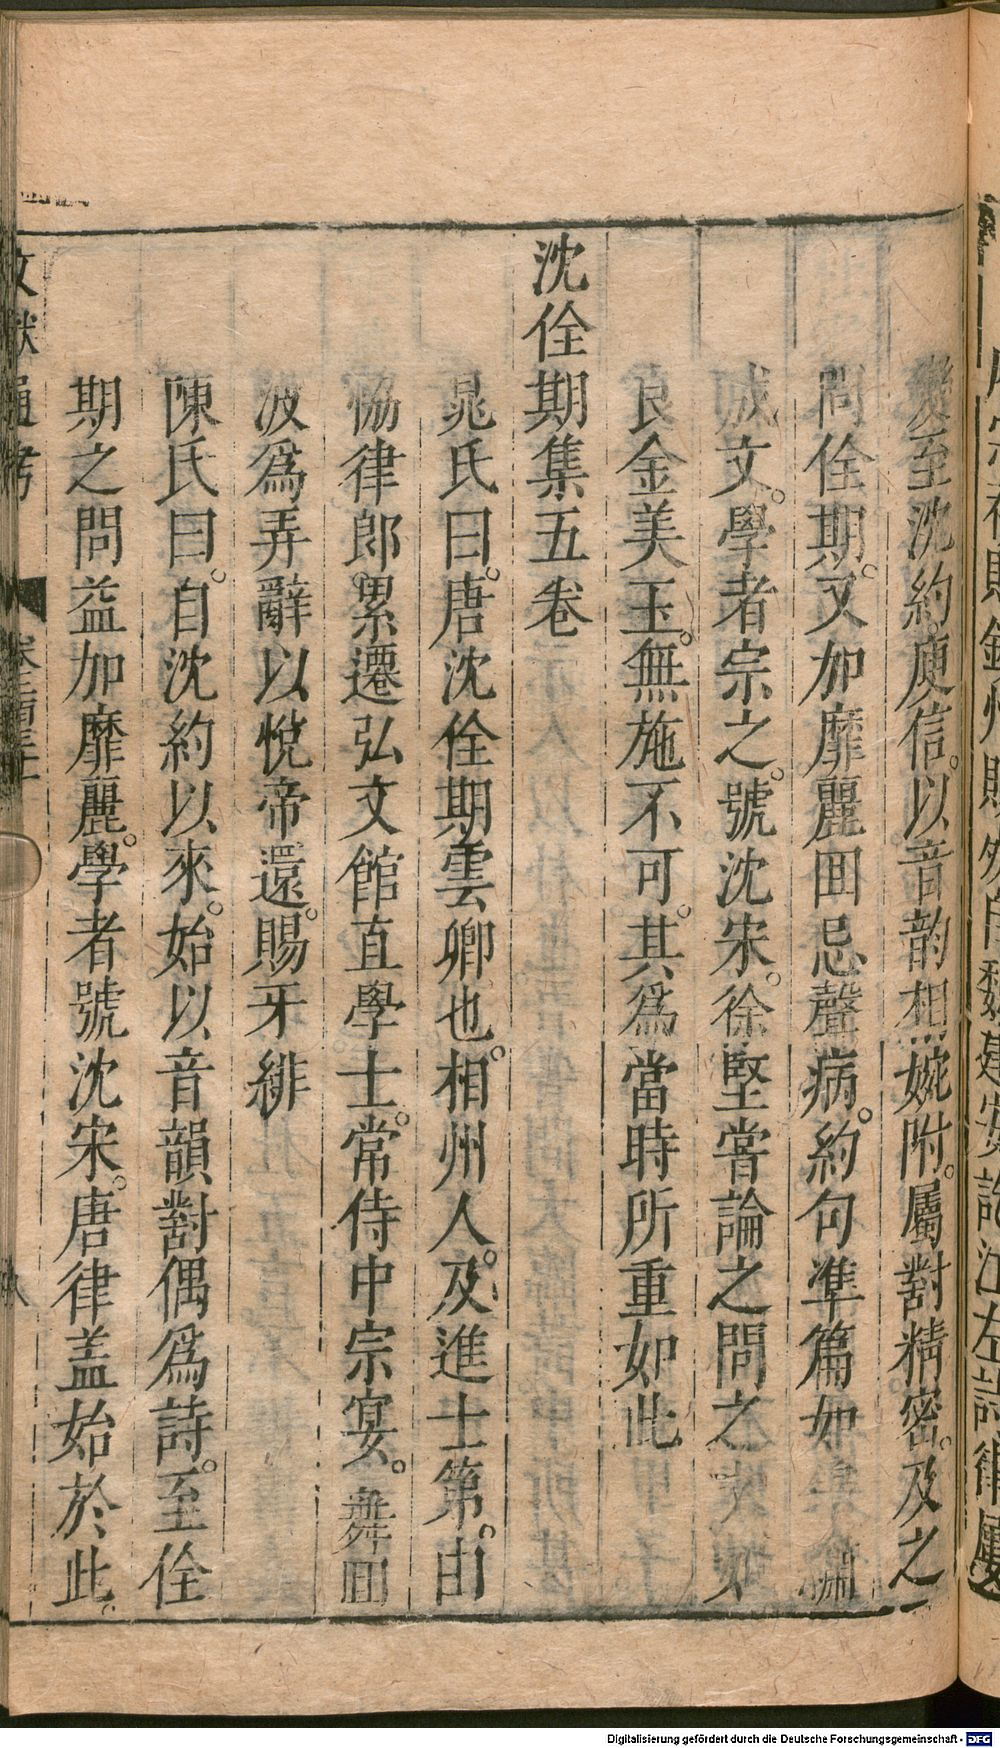 變至沈約。庾信。以音韵相婉附。屬對精密。及之
問佺期。又加靡麗囬忌聲病。約句準篇。如錦繡
成文。學者宗之。號沈宋。徐堅嘗論之問之文如
良金美玉。無施不可。其爲當時所重如此
沈佺期集五卷
晁氏曰。唐沈佺期雲卿也。相州人。及進士第。由
恊律郎。累遷弘文館直學士。常侍中宗宴。舞囬
波爲弄辭以悅帝還。賜牙緋
陳氏曰。自沈約以來。始以音韻對偶爲詩。至佺
期之問益加靡麗。學者號沈宋。唐律盖始於此。
文獻通考
Digitalisierung gefördert durch die Deutsche Forschungsgemeinschaft - DFG